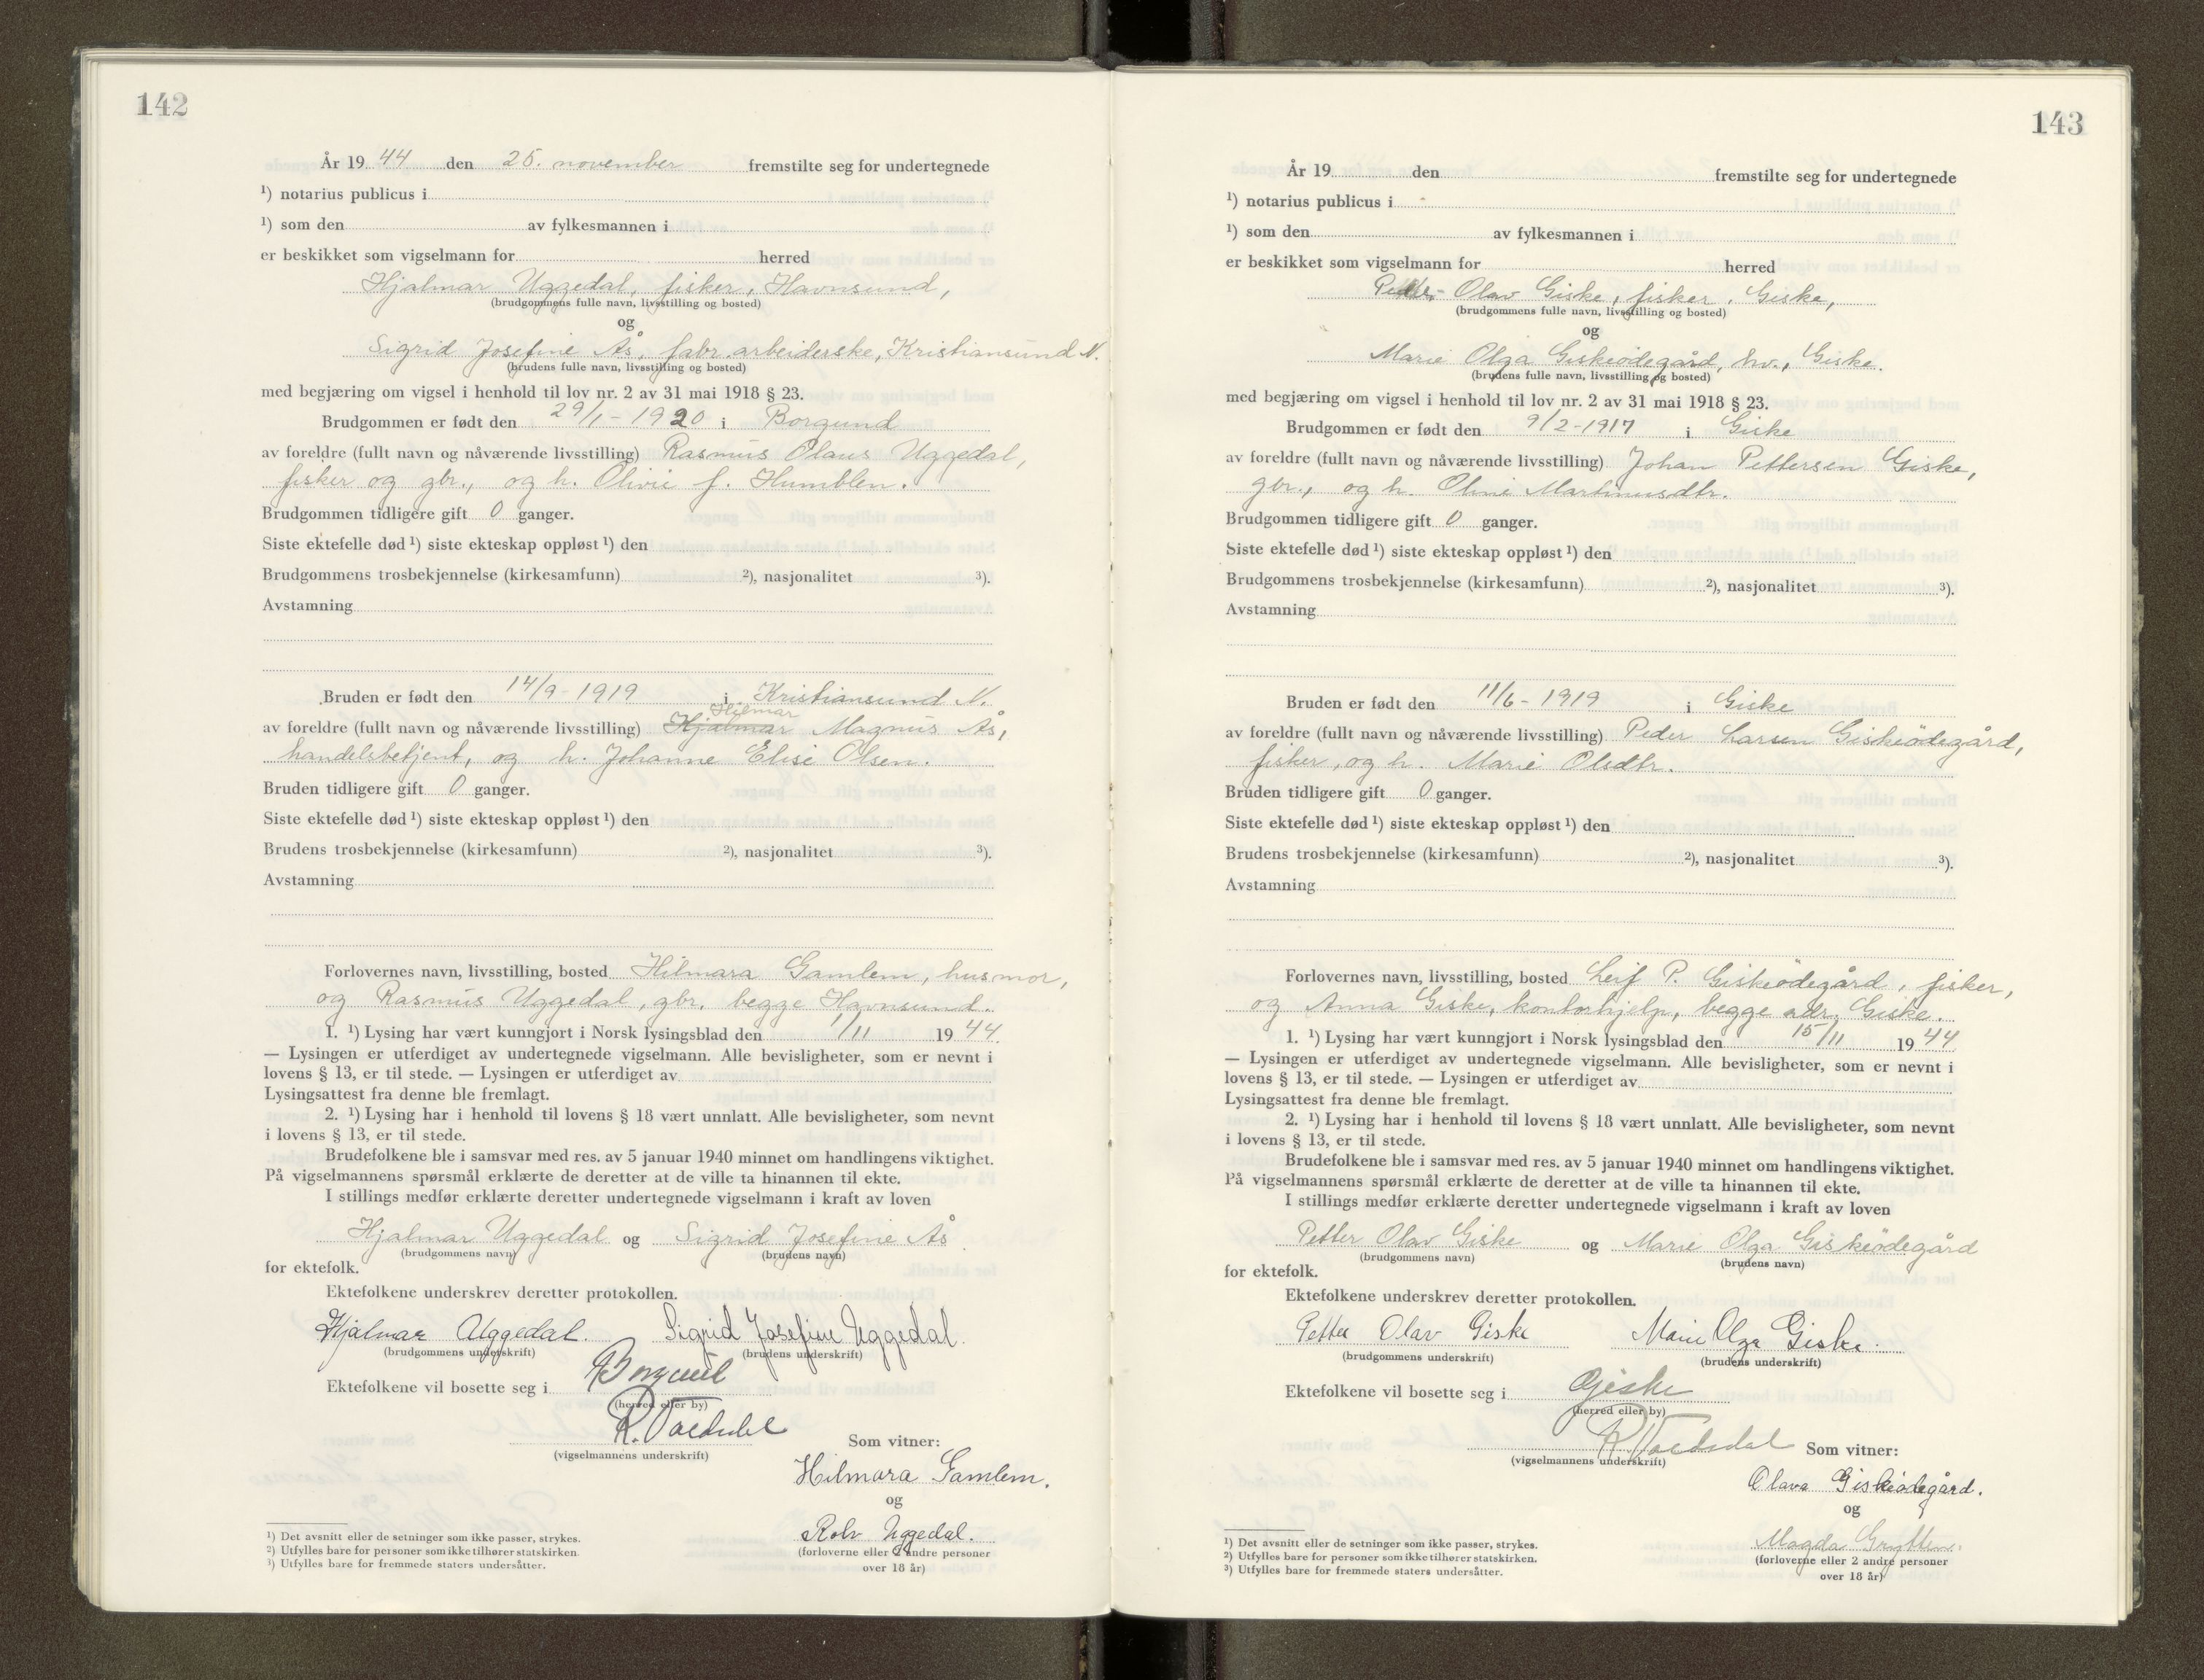 142
År 19 44 den 25. november fremstilte seg for undertegnede
¹) notarius publicus i
¹) som den av fylkesmannen i
er beskikket som vigselmann for herred
Hjalmar Uggedal, fisker, Havnsund,
(brudgommens fulle navn, livsstilling og bosted)
og
Sigrid Josefine Ås, fabr.arbeiderske, Kristiansund N.
(brudens fulle navn, livsstilling og bosted)
med begjæring om vigsel i henhold til lov nr. 2 av 31 mai 1918 § 23.
Brudgommen er født den 29/1 - 1920 i Borgund
av foreldre (fullt navn og nåværende livsstilling) Rasmus Olaus Uggedal,
fisker og gbr., og h. Olivie f. Humblen.
Brudgommen tidligere gift 0 ganger.
Siste ektefelle død ¹) siste ekteskap oppløst ¹) den
Brudgommens trosbekjennelse (kirkesamfunn) ²), nasjonalitet ³).
Avstamning
Bruden er født den 14/9 - 1919 i Kristiansund N.
Hilmar
av foreldre (fullt navn og nåværende livsstilling) Hjalmar Magnus Ås,
handelsbetjent, og h. Johanne Elise Olsen.
Bruden tidligere gift 0 ganger.
Siste ektefelle død ¹) siste ekteskap oppløst ¹) den
Brudens trosbekjennelse (kirkesamfunn) ²), nasjonalitet ³).
Avstamning
Forlovernes navn, livsstilling, bosted Hilmara Gamlem, husmor,
og Rasmus Uggedal, gbr. begge Havnsund.
1. ¹) Lysing har vært kunngjort i Norsk lysingsblad den 1/11 19 44.
— Lysingen er utferdiget av undertegnede vigselmann. Alle bevisligheter, som er nevnt i
lovens § 13, er til stede. — Lysingen er utferdiget av
Lysingsattest fra denne ble fremlagt.
2. ¹) Lysing har i henhold til lovens § 18 vært unnlatt. Alle bevisligheter, som nevnt
i lovens § 13, er til stede.
Brudefolkene ble i samsvar med res. av 5 januar 1940 minnet om handlingens viktighet.
På vigselmannens spørsmål erklærte de deretter at de ville ta hinannen til ekte.
I stillings medfør erklærte deretter undertegnede vigselmann i kraft av loven
Hjalmar Uggedal og Sigrid Josefine Ås
(brudgommens navn) (brudens navn)
for ektefolk.
Ektefolkene underskrev deretter protokollen.
Hjalmar Uggedal. Sigrid Josefine Uggedal.
(brudgommens underskrift) (brudens underskrift)
Ektefolkene vil bosette seg i Borgund
(herred eller by)
(vigselmannens underskrift)
Som vitner:
Hilmara Gamlem.
og
Rolv Uggedal.
(forloverne eller 2 andre personer
over 18 år)
¹) Det avsnitt eller de setninger som ikke passer, strykes.
²) Utfylles bare for personer som ikke tilhører statskirken.
³) Utfylles bare for fremmede staters undersåtter.
143
År 19 den fremstilte seg for undertegnede
¹) notarius publicus i
¹) som den av fylkesmannen i
er beskikket som vigselmann for herred
Petter Olav Giske, fisker, Giske,
(brudgommens fulle navn, livsstilling og bosted)
og
Marie Olga Giskeödegård, hv., Giske.
(brudens fulle navn, livsstilling og bosted)
med begjæring om vigsel i henhold til lov nr. 2 av 31 mai 1918 § 23.
Brudgommen er født den 9/2 - 1917 i Giske
av foreldre (fullt navn og nåværende livsstilling) Johan Pettersen Giske,
gbr., og h. Oline Martinusdtr.
Brudgommen tidligere gift 0 ganger.
Siste ektefelle død ¹) siste ekteskap oppløst ¹) den
Brudgommens trosbekjennelse (kirkesamfunn) ²), nasjonalitet ³).
Avstamning
Bruden er født den 11/6 - 1919 i Giske
av foreldre (fullt navn og nåværende livsstilling) Peder Larsen Giskeödegård,
fisker, og h. Marie Olsdtr.
Bruden tidligere gift 0 ganger.
Siste ektefelle død ¹) siste ekteskap oppløst ¹) den
Brudens trosbekjennelse (kirkesamfunn) ²), nasjonalitet ³).
Avstamning
Forlovernes navn, livsstilling, bosted Leif P. Giskeödegård, fisker,
og Anna Giske, kontorhjelp, begge adr. Giske.
1. ¹) Lysing har vært kunngjort i Norsk lysingsblad den 15/11 19 44
— Lysingen er utferdiget av undertegnede vigselmann. Alle bevisligheter, som er nevnt i
lovens § 13, er til stede. — Lysingen er utferdiget av
Lysingsattest fra denne ble fremlagt.
2. ¹) Lysing har i henhold til lovens § 18 vært unnlatt. Alle bevisligheter, som nevnt
i lovens § 13, er til stede.
Brudefolkene ble i samsvar med res. av 5 januar 1940 minnet om handlingens viktighet.
På vigselmannens spørsmål erklærte de deretter at de ville ta hinannen til ekte.
I stillings medfør erklærte deretter undertegnede vigselmann i kraft av loven
Petter Olav Giske og Marie Olga Giskeödegård
(brudgommens navn) (brudens navn)
for ektefolk.
Ektefolkene underskrev deretter protokollen.
Petter Olav Giske Marie Olga Giske.
(brudgommens underskrift) (brudens underskrift)
Ektefolkene vil bosette seg i Giske
(herred eller by)
(vigselmannens underskrift)
Som vitner:
Olava Giskeödegård.
og
Magda Grytten.
(forloverne eller 2 andre personer
over 18 år)
¹) Det avsnitt eller de setninger som ikke passer, strykes.
²) Utfylles bare for personer som ikke tilhører statskirken.
³) Utfylles bare for fremmede staters undersåtter.